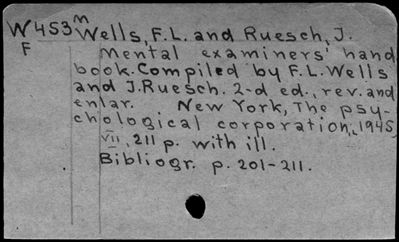 W453m Wells, F.L. and Ruesch, J.
F Mental examiners' hand
book. Compiled by F.L. Wells
and J. Ruesch. 2-d ed., rev. and
enlar. New York, The psy-
chological corporation, 1945.
VII, 211 p. with ill.
Bibliogr. p. 201-211.